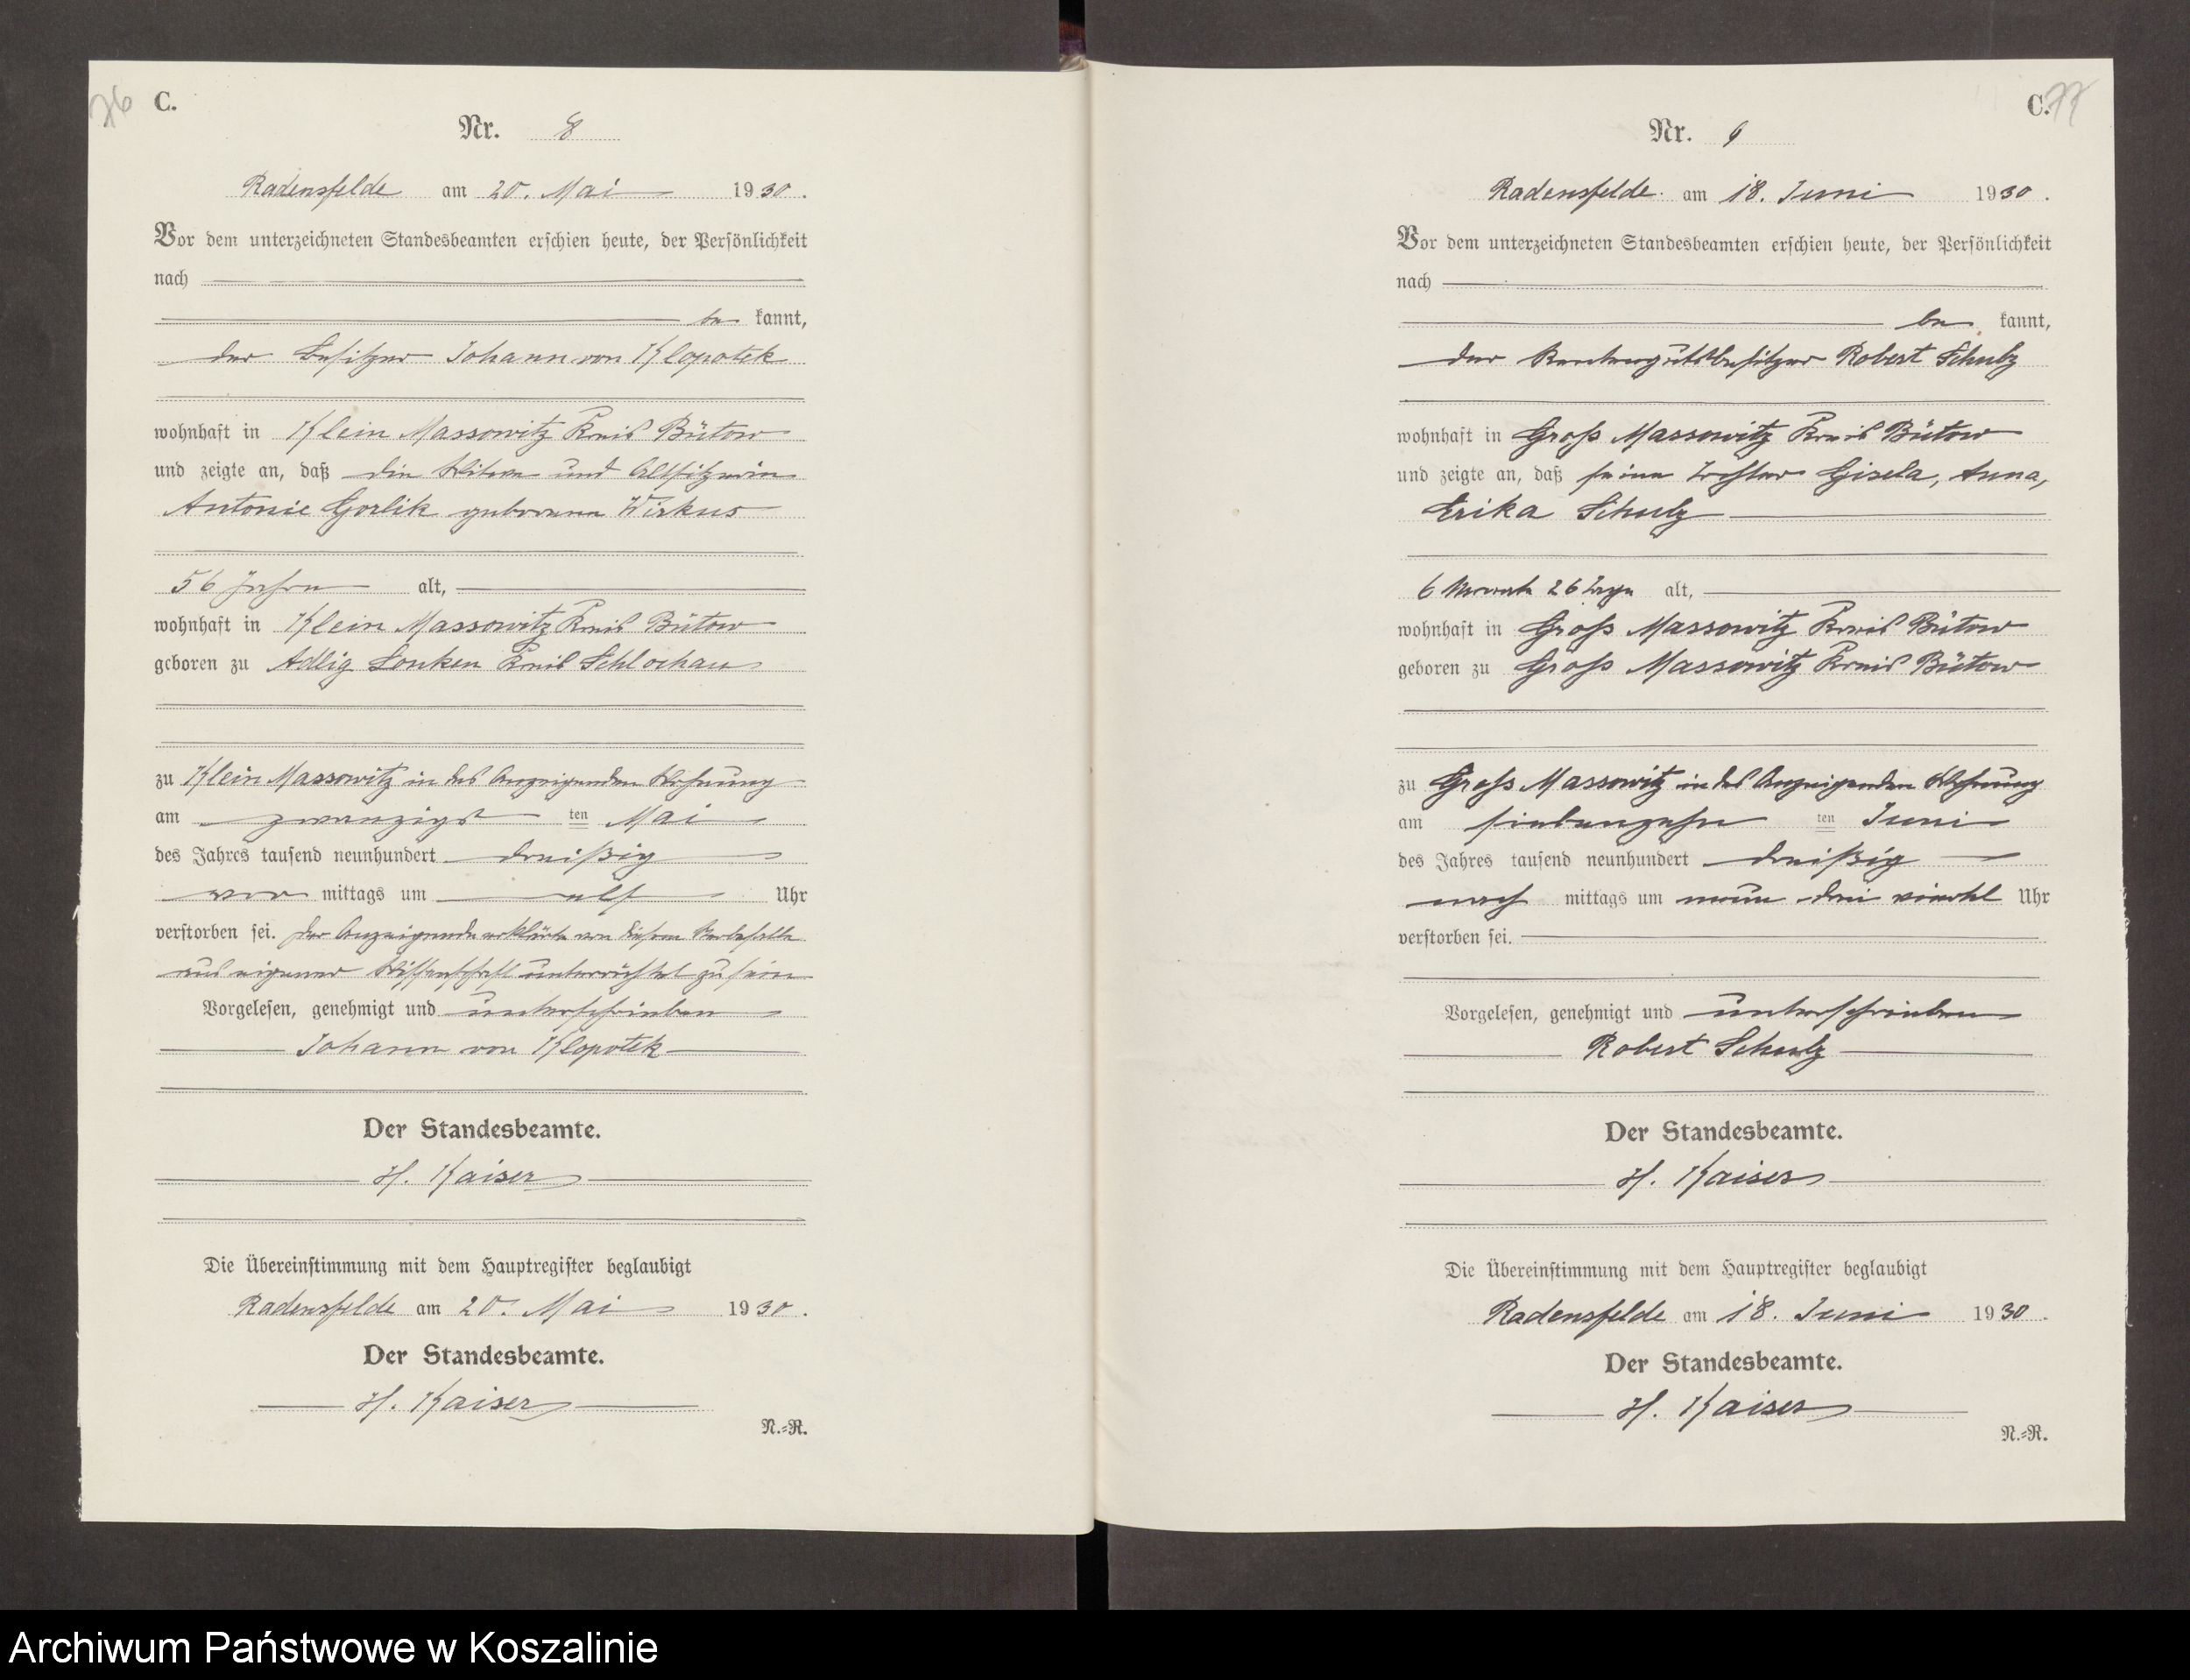 76
C.
Nr. 8
Radensfelde am 20. Mai 1930.
Vor dem unterzeichneten Standesbeamten erschien heute, der Persönlichkeit
nach
be kannt,
der Besitzer Johann von Klopotek
wohnhaft in Klein Massowitz Kreis Bütow
und zeigte an, daß die Witwe und Altsitzerin
Antonie Gorlik geborene Wirkus
56 Jahre alt,
wohnhaft in Klein Massowitz Kreis Bütow
geboren zu Adlig Lonken Kreis Schlochau
zu Klein Massowitz in des Anzeigenden Wohnung
am zwanzigst ten Mai
des Jahres tausend neunhundert dreißig
vor mittags um elf Uhr
verstorben sei. Der Anzeigende erklärte von diesem Sterbefalle
aus eigener Wissenschaft unterrichtet zu sein
Vorgelesen, genehmigt und unterschrieben
Johann von Klopotek
Der Standesbeamte.
H. Kaiser
Die Übereinstimmung mit dem Hauptregister beglaubigt
Radensfelde am 20. Mai 1930.
Der Standesbeamte.
H. Kaiser
N.=R.
C. 77
Nr. 9
Radensfelde. am 18. Juni 1930.
Vor dem unterzeichneten Standesbeamten erschien heute, der Persönlichkeit
nach
be kannt,
der Rentengutsbesitzer Robert Schulz
wohnhaft in Groß Massowitz Kreis Bütow
und zeigte an, daß seine Tochter Gisela, Anna,
Erika Schulz
6 Monate 26 Tage alt,
wohnhaft in Groß Massowitz Kreis Bütow
geboren zu Groß Massowitz Kreis Bütow
zu Groß Massowitz in des Anzeigenden Wohnung
am siebenzehn ten Juni
des Jahres tausend neunhundert dreißig
nach mittags um neun drei viertel Uhr
verstorben sei.
Vorgelesen, genehmigt und unterschrieben
Robert Schulz
Der Standesbeamte.
H. Kaiser
Die Übereinstimmung mit dem Hauptregister beglaubigt
Radensfelde am 18. Juni 1930.
Der Standesbeamte.
H. Kaiser
N.=R.
Archiwum Państwowe w Koszalinie